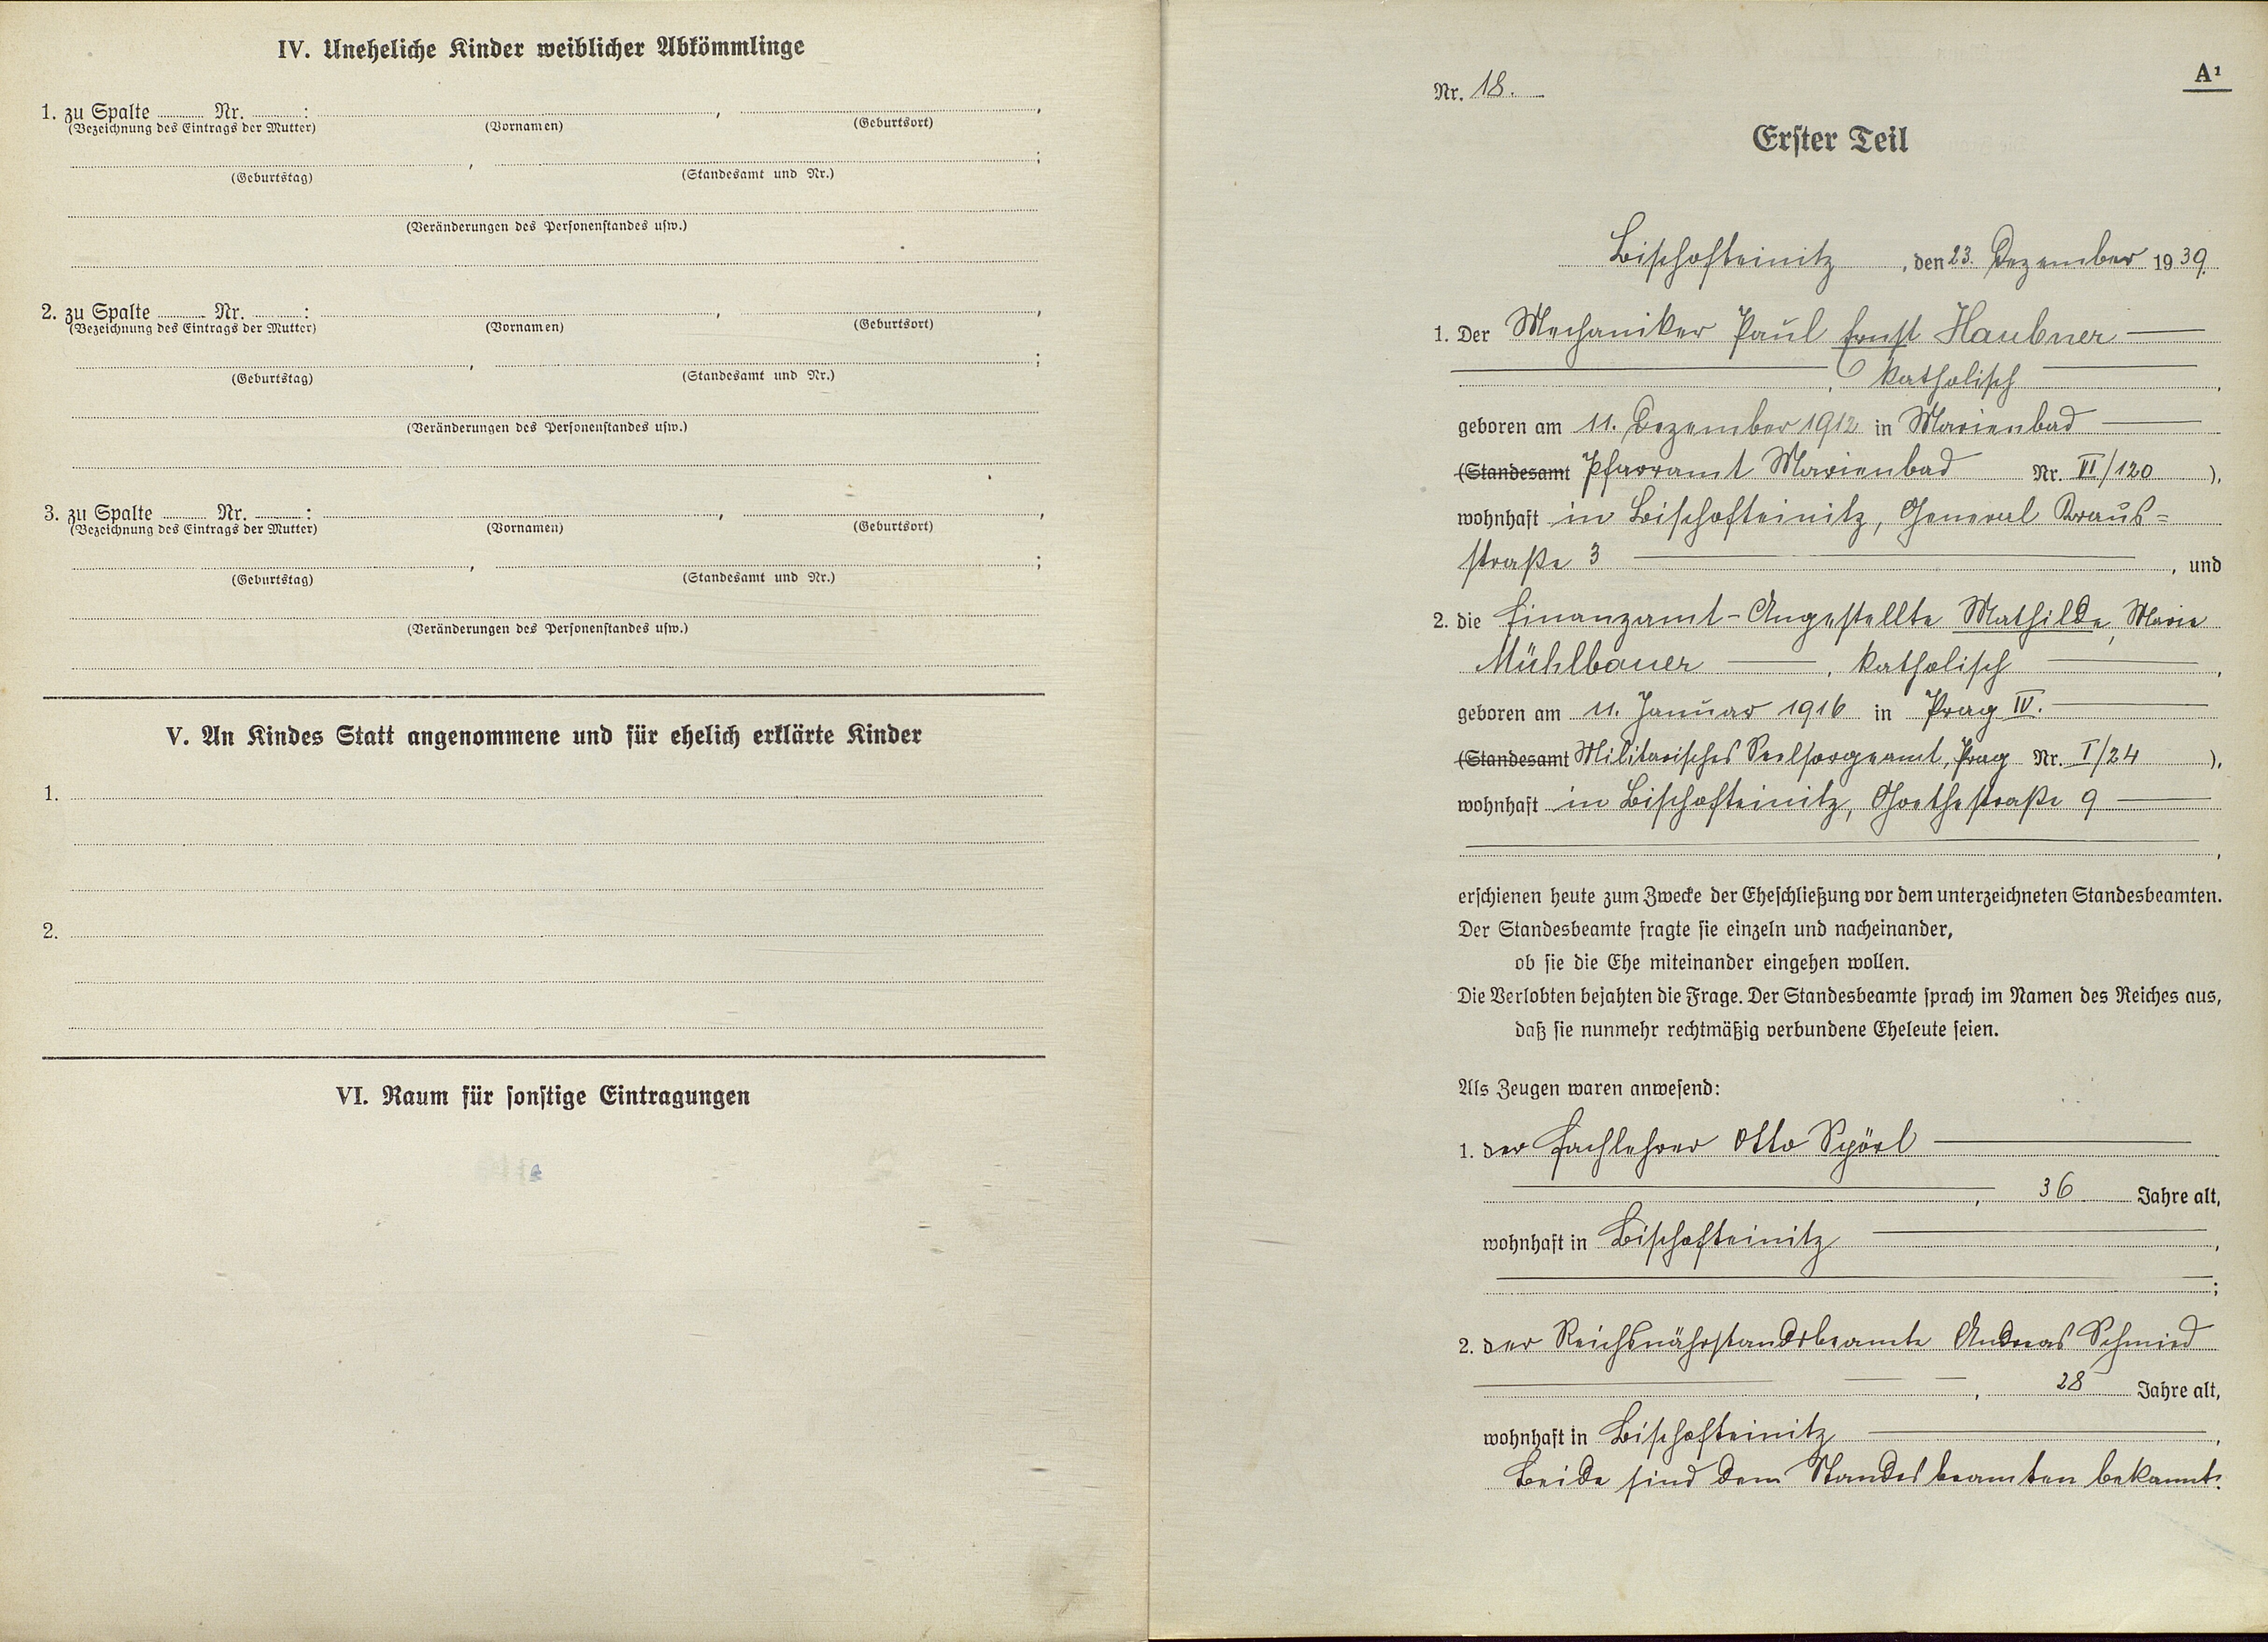 IV. Uneheliche Kinder weiblicher Abkömmlinge
1. zu Spalte ........ Nr. ........:
(Bezeichnung des Eintrags der Mutter) (Vornamen) (Geburtsort)
(Geburtstag) (Standesamt und Nr.)
(Veränderungen des Personenstandes usw.)
2. zu Spalte ........ Nr. ........:
(Bezeichnung des Eintrags der Mutter) (Vornamen) (Geburtsort)
(Geburtstag) (Standesamt und Nr.)
(Veränderungen des Personenstandes usw.)
3. zu Spalte ........ Nr. ........:
(Bezeichnung des Eintrags der Mutter) (Vornamen) (Geburtsort)
(Geburtstag) (Standesamt und Nr.)
(Veränderungen des Personenstandes usw.)
V. An Kindes Statt angenommene und für ehelich erklärte Kinder
1.
2.
VI. Raum für sonstige Eintragungen
A¹
Nr. 18.
Erster Teil
Bischofteinitz, den 23. Dezember 1939.
1. Der Mechaniker Paul Ernst Haubner
, katholisch,
geboren am 11. Dezember 1912 in Marienbad
(Standesamt Pfarramt Marienbad Nr. VI/120),
wohnhaft in Bischofteinitz, General Kraus=
straße 3, und
2. die Finanzamt-Angestellte Mathilde, Marie
Mühlbauer, katholisch,
geboren am 11. Januar 1916 in Prag IV.
(Standesamt Militärisches Seelsorgeamt, Prag Nr. I/24),
wohnhaft in Bischofteinitz, Goethestraße 9
,
erschienen heute zum Zwecke der Eheschließung vor dem unterzeichneten Standesbeamten.
Der Standesbeamte fragte sie einzeln und nacheinander,
ob sie die Ehe miteinander eingehen wollen.
Die Verlobten bejahten die Frage. Der Standesbeamte sprach im Namen des Reiches aus,
daß sie nunmehr rechtmäßig verbundene Eheleute seien.
Als Zeugen waren anwesend:
1. der Fachlehrer Otto Spörl
, 36 Jahre alt,
wohnhaft in Bischofteinitz,
;
2. der Reichsnährstandsbeamte Andreas Schmied
, 28 Jahre alt,
wohnhaft in Bischofteinitz,
Beide sind dem Standesbeamten bekannt.